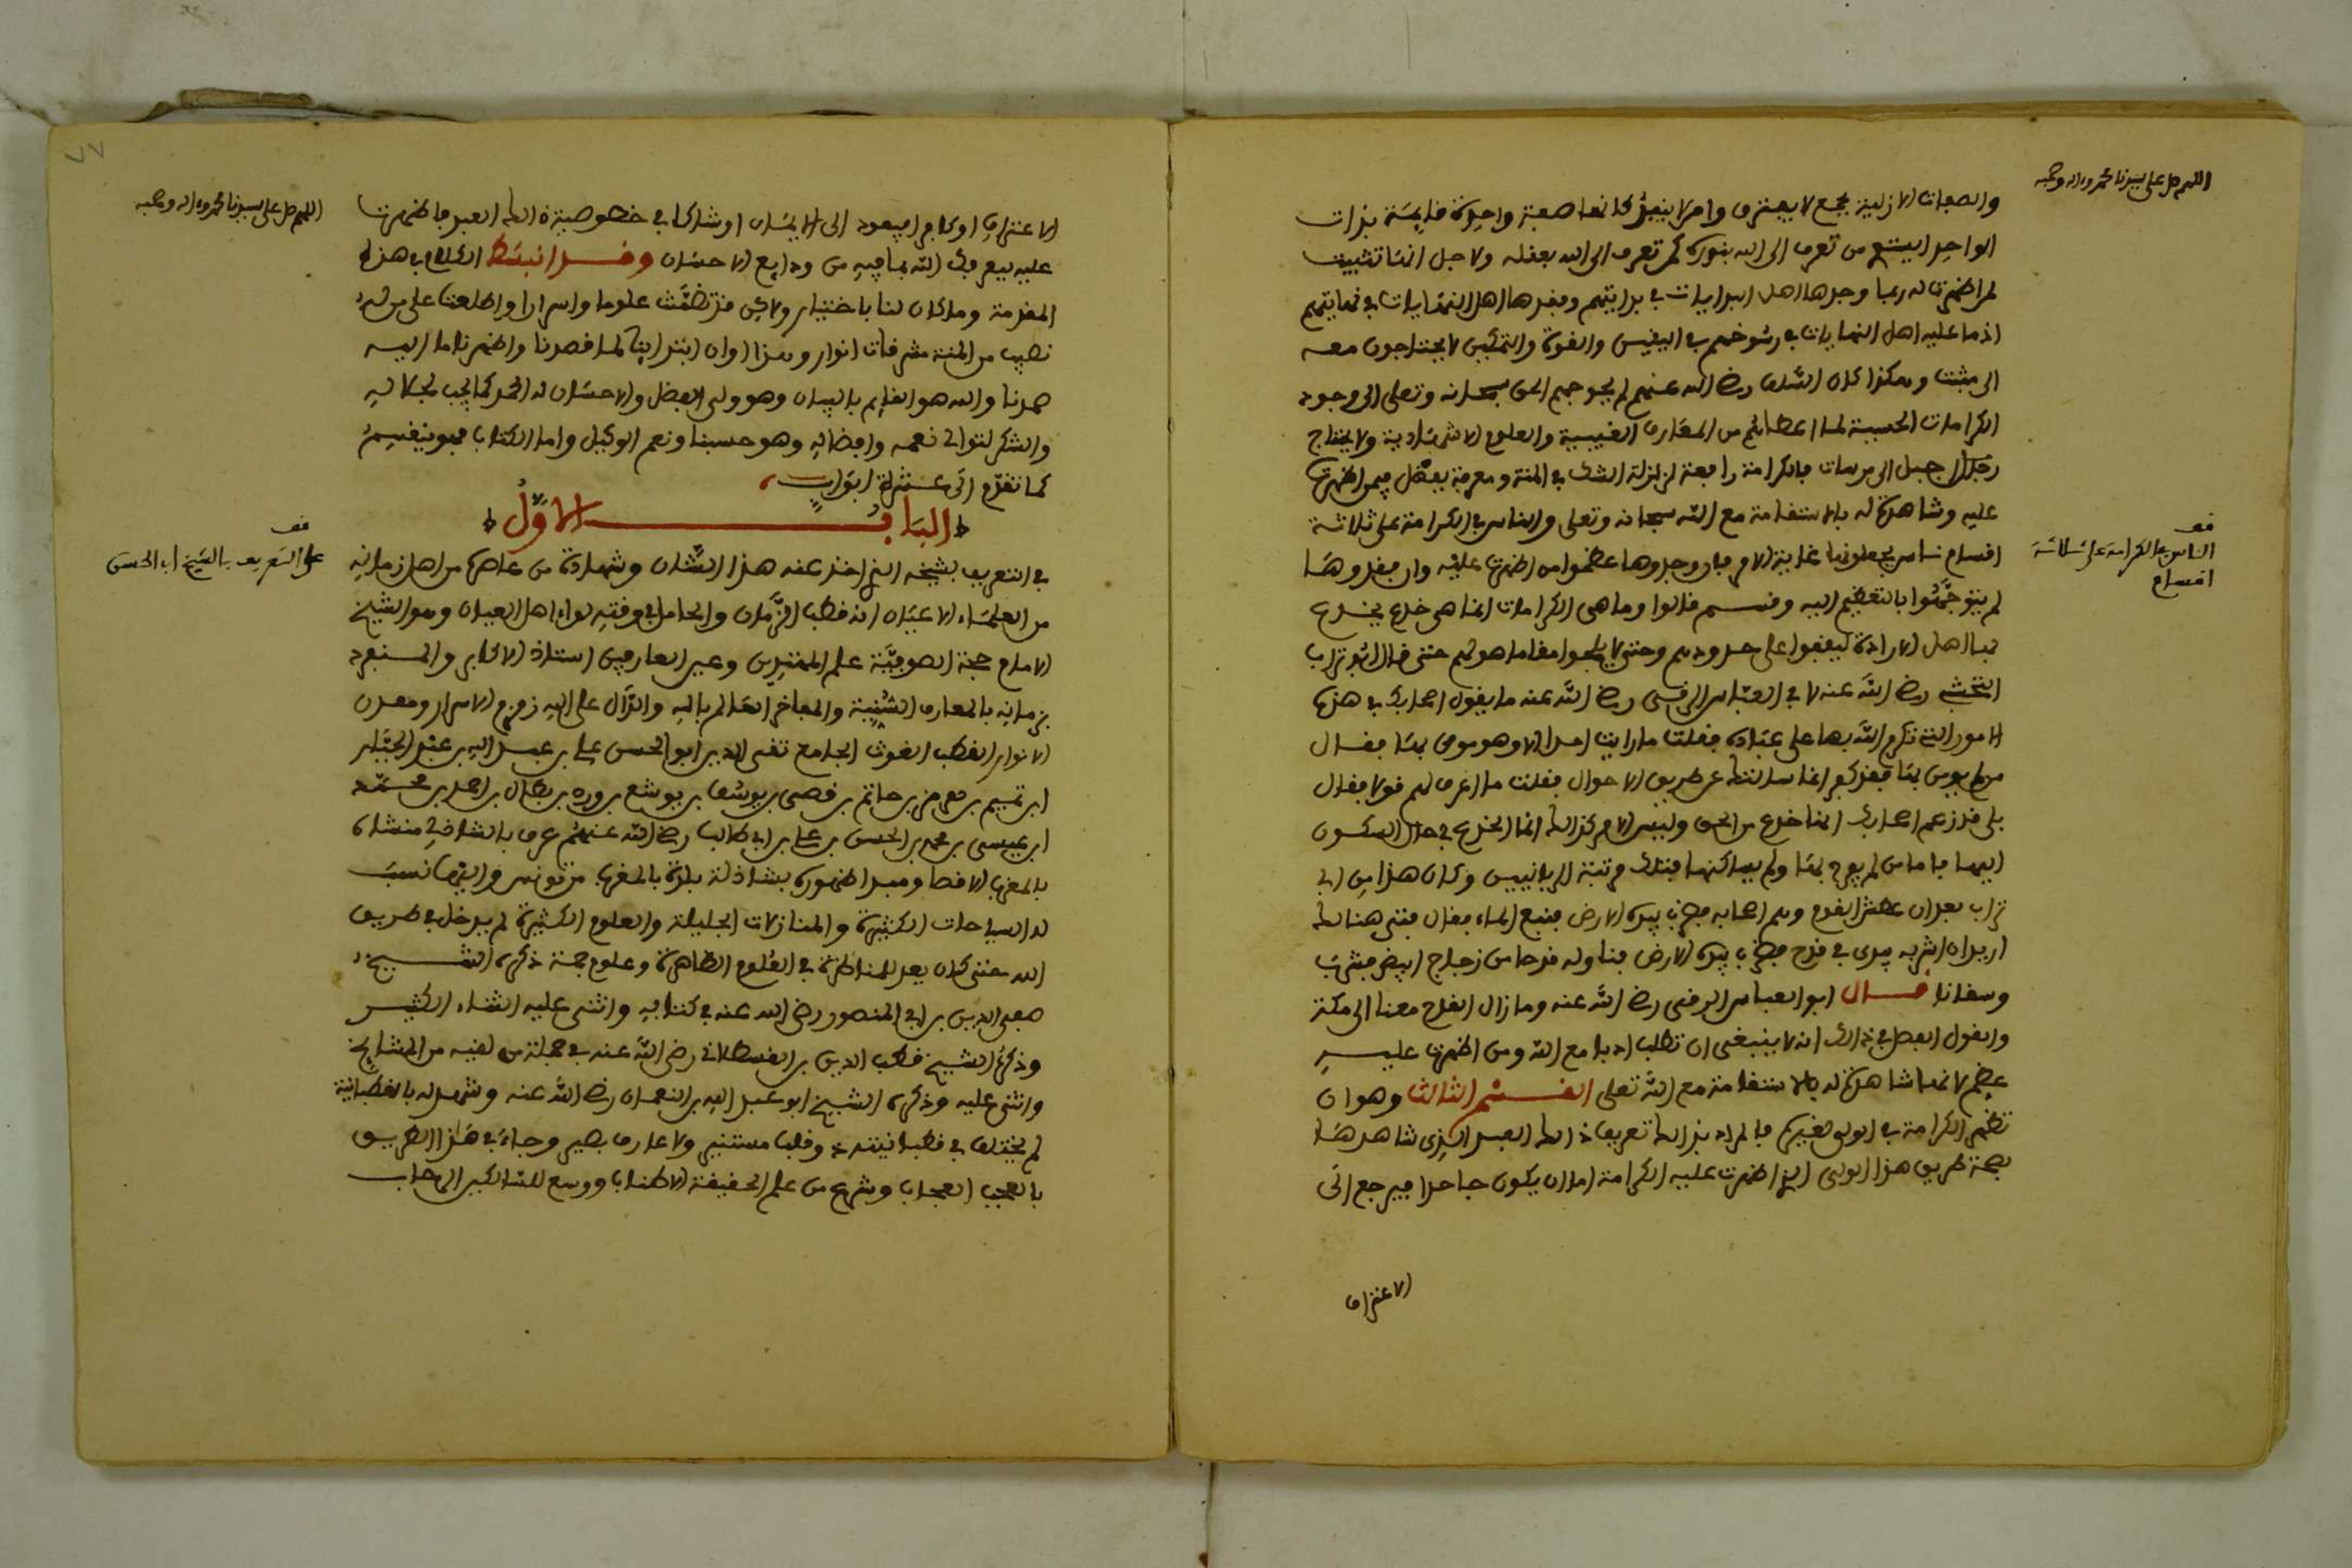 اللهم صل على سيدنا محمد وءاله وصحبه
والصفات الازلية بجمع لا يفترق وامر لا يتعدد كانها صفة واحدة قايمة بذات
الواحد ايستوى من تعرف الى الله بنوره كمن تعرف الى الله بعقله ولاجل انها تثبيت
لمن اظهرت له ربما وجدها اهل البدايات في بدايتهم وفقدها اهل النهايات في نهايتهم
اذ ما عليه اهل النهايات في رسوخهم في اليقين والقوة والتمكين لا يحتاجون معه
الى مثبت وهكذا كان السلف رضي الله عنهم لم يحوجهم الحق سبحانه وتعلى الى وجود
الكرامات الحسية لما اعطاهم من المعارف الغيبية والعلوم الاشهادية ولا يحتاج
جبل الى مرسات فالكرامة رافعة لزلزلة الشك في المنة ومعرفة بفضل فيمن اظهرت
عليه وشاهدة له بالاستقامة مع الله سبحانه وتعلى والناس في الكرامة على ثلاثة
قف
الناس في الكرامة على ثلاثة
اقسام
اقسام ناس يجعلونها غاية الامر فان وجدوها عظموا من اظهرت عليه وان فقدوها
لم يتوجهوا بالتعظيم اليه وقسم قالوا وما هي الكرامات انما هي خدع يخدع
بها اهل الارادة ليقفوا على حدودهم وحتى لا يلجوا مقاما هو لهم حتى قال ابو تراب
النخشبي رضي الله عنه لابي العباس الرقي رضي الله عنه ما يقول اصحابك في هذه
الامور التي تكرم الله بها على عباده فقلت ما رايت احدا الا وهو مومن بها فقال
من لم يومن بها فقد كفر انما سالتك عن طريق الاحوال فقلت ما اعرف لهم قولا فقال
بلى قد زعم اصحابك انها خدع من الحق وليس الامر كذلك انما الخدع في حال السكون
اليها فاما من لم يفرح بها ولم يساكنها فتلك مرتبة الربانيين وكان هذا من ابي
تراب بعد ان عطش القوم وهم اصحابه فضرب بيده الارض فنبع الماء فقال فتى هنالك
اريد ان اشربه في قدح فضرب بيده الارض فناوله قدحا من زجاج ابيض فشرب
وسقانا قال ابو العباس الرقي رضي الله عنه وما زال القدح معنا الى مكة
والقول الفصل في ذالك انه لا ينبغي ان تطلب ادبا مع الله ومن اظهرت عليه
عظم لانها شاهدة له بالاستقامة مع الله تعلى القسم الثالث وهو ان
تظهر الكرامة في الولي لغيره فالمراد بذالك تعريف ذالك العبد الذي شاهدها
بصحة طريق هذا الولي الذي اظهرت عليه الكرامة اما ان يكون جاحدا فيرجع الى
الاعتراف
٧٧
اللهم صل على سيدنا محمد وءاله وصحبه
الاعتراف او كافرا فيعود الى الايمان او شاكا في خصوصية ذالك العبد فاظهرت
عليه ليعرفك الله بما فيه من ودايع الاحسان وقد انبسط الكلام في هذه
المقدمة وما كان لنا باختيار ولاكن قد تضمنت علوما واسرارا واطلعت على من له
نصيب من المنة مشرفات انوار وهذا اوان ابتداينا لما قصدنا واظهرنا ما اليه
صمدنا والله هو القايم بالبيان وهو ولي الفضل والاحسان له الحمد كما يجب لجلاله
والشكر لتوالي نعمه وافضاله وهو حسبنا ونعم الوكيل واما الكتاب فهو ينقسم
كما تقدم الى عشرة ابواب
الباب الاول
قف
على التعريف بالشيخ اب الحسن
في التعريف بشيخه الذي اخذ عنه هذا الشان وشهادة من عاصره من اهل زمانه
من العلماء الاعيان انه قطب الزمان والحامل في وقته لواء اهل العيان وهو الشيخ
الامام حجة الصوفية علم المهتدين وعين العارفين استاذ الاكابر والمنفرد
في زمانه بالمعارف السنية والمفاخر العالم بالله والدال على الله زمزم الاسرار ومعدن
الانوار القطب الغوث الجامع تقي الدين ابو الحسن علي بن عبد الله بن عبد الجبار
ابن تميم بن هرمز بن حاتم بن قصي بن يوسف بن يوشع بن ورد بن بطال بن احمد بن محمد
ابن عيسى بن محمد بن الحسن بن علي بن ابي طالب رضي الله عنهم عرف بالشاذلي منشاه
بالمغرب الاقصا ومبدا ظهوره بشاذلة بلدة بالمغرب من تونس واليها نسب
له السياحات الكثيرة والمنازلات الجليلة والعلوم الكثيرة لم يدخل في طريق
الله حتى كان يعد للمناظرة في العلوم الظاهرة وعلوم جمة ذكره الشيخ
صفي الدين بن ابي المنصور رضي الله عنه في كتابه واثنى عليه الثناء الكثير
وذكره الشيخ قطب الدين بن القسطلاني رضي الله عنه في جملة من لقيه من المشايخ
واثنى عليه وذكره الشيخ ابو عبد الله بن النعمان رضي الله عنه وشهد له بالقطبانية
لم يختلف في قطبانيته ذو قلب مستنير ولا عارف بصير وجاء في هذا الطريق
بالعجب العجاب وشرع من علم الحقيقة الاطناب ووسع للسالكين الرحاب